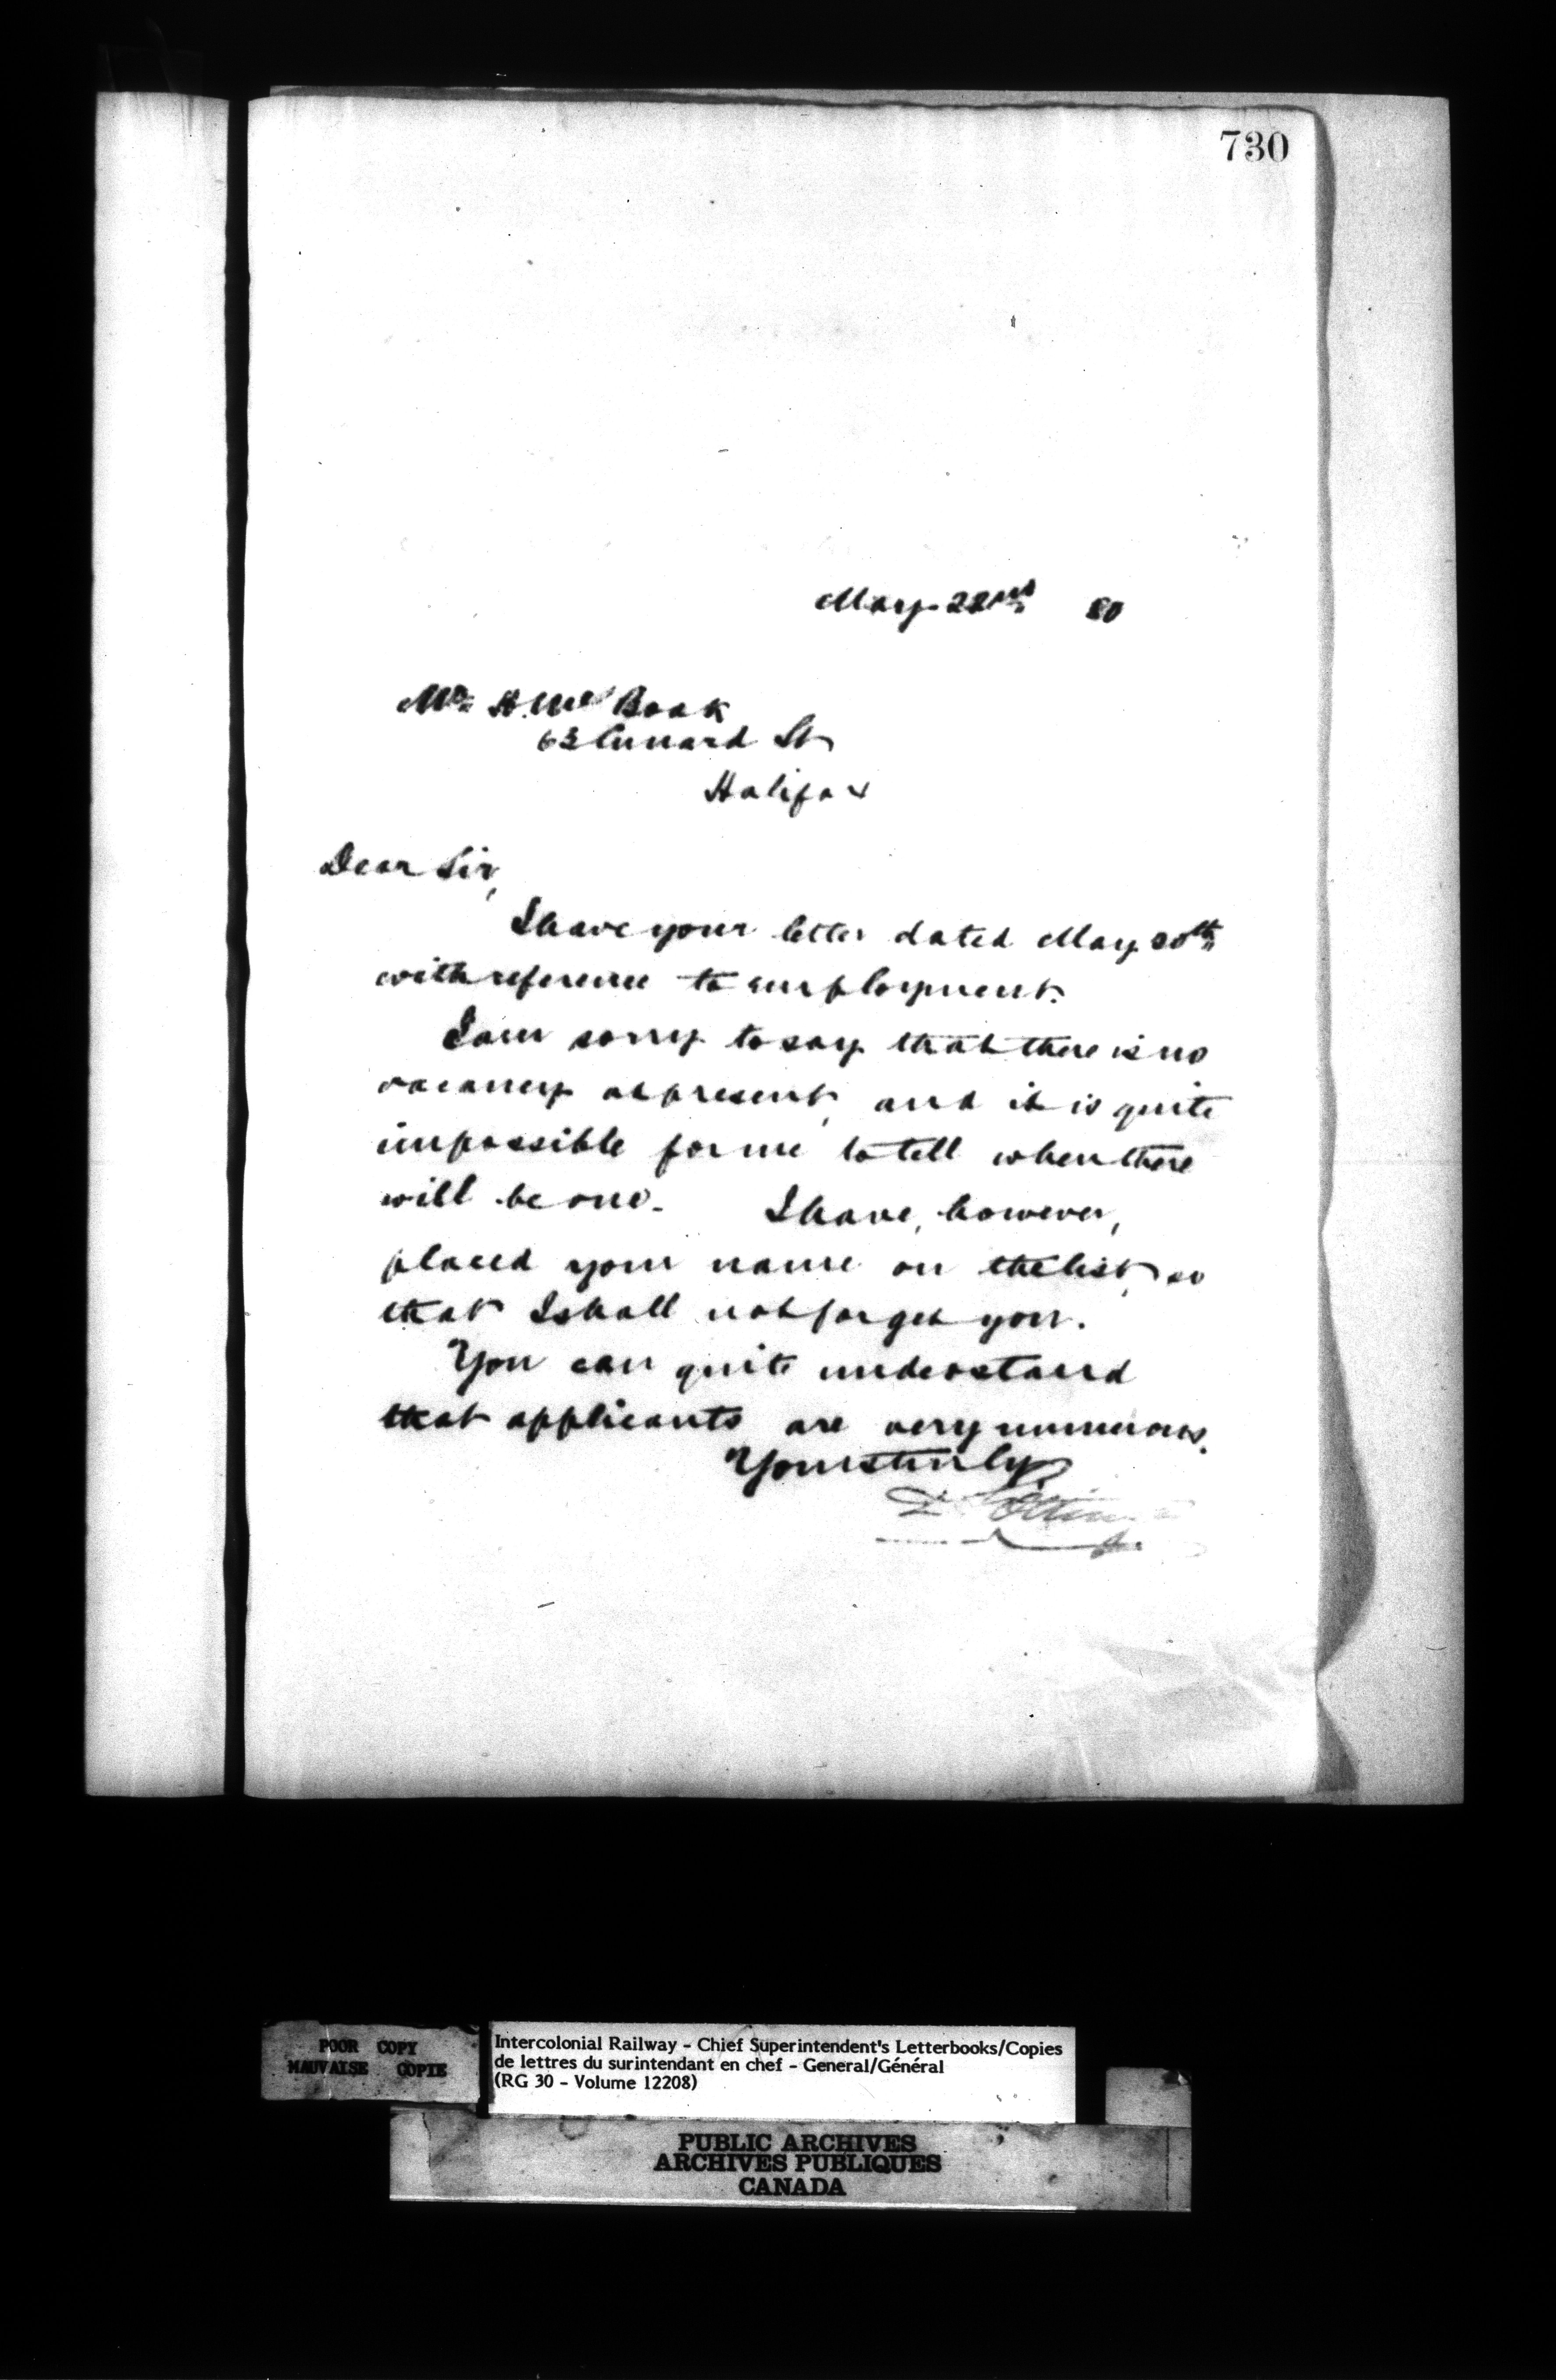 730
May 22nd 80
Mr. H. Mc Book
63 Cunard St
Halifax
Dear Sir,
I have your letter dated May 20th
with reference to employment.
I am sorry to say that there is no
vacancy at present, and it is quite
impossible for me to tell when there
will be one. I have, however,
placed your name on the list, so
that I shall not forget you.
You can quite understand
that applicants are very numerous.
Yours truly
D
POOR COPY
MAUVAISE COPIE
Intercolonial Railway - Chief Superintendent's Letterbooks/Copies
de lettres du surintendant en chef - General/Général
(RG 30 - Volume 12208)
PUBLIC ARCHIVES
ARCHIVES PUBLIQUES
CANADA